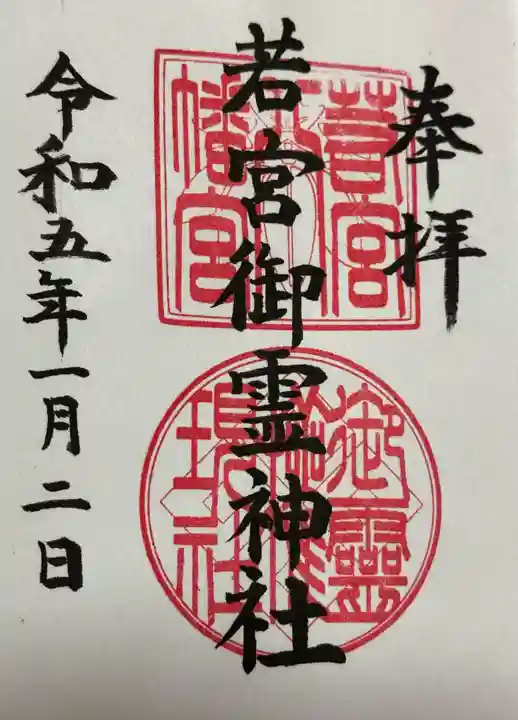 奉拝
若宮御霊神社
令和五年一月二日
若宮
幡宮
御靈